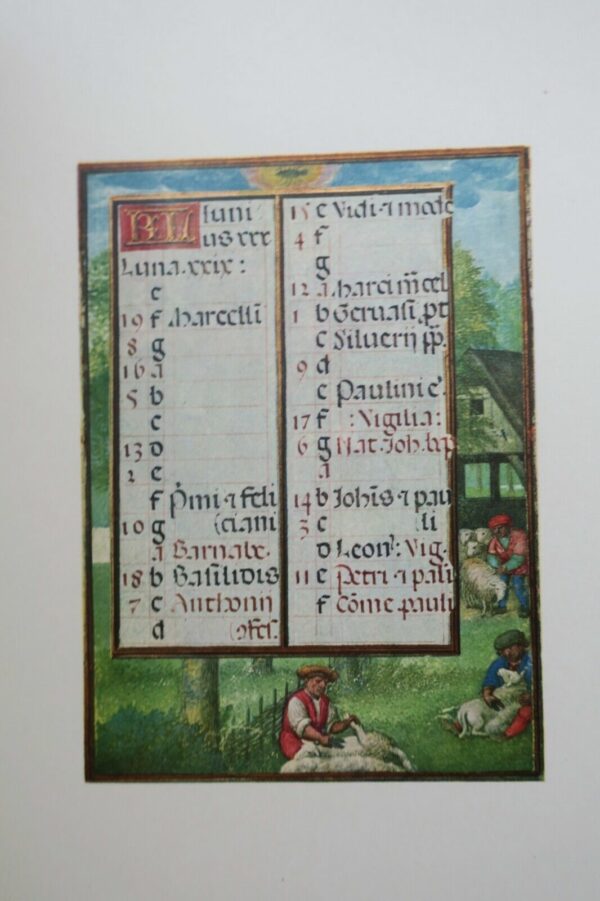 KL Iuni
us xxx
Luna. xxix:
e
19 f Marcelli
8 g
16 a
5 b
c
13 d
2 e
f P̃mi ⁊ feli
10 g (ciani
a Barnabe.
18 b Basilidis
7 c Anthonij
d (ɔfes.
15 e Viti ⁊ mode
4 f
g
12 a Marci m̃cel
1 b Geruasij pt
c Siluerij pp.
9 d
e Paulini e.
17 f : Vigilia :
6 g Nat. Joh. bap
a
14 b Joh̃is ⁊ pau
3 c (li
d Leon: Vig.
11 e Petri ⁊ pauli
f Cõme. pauli